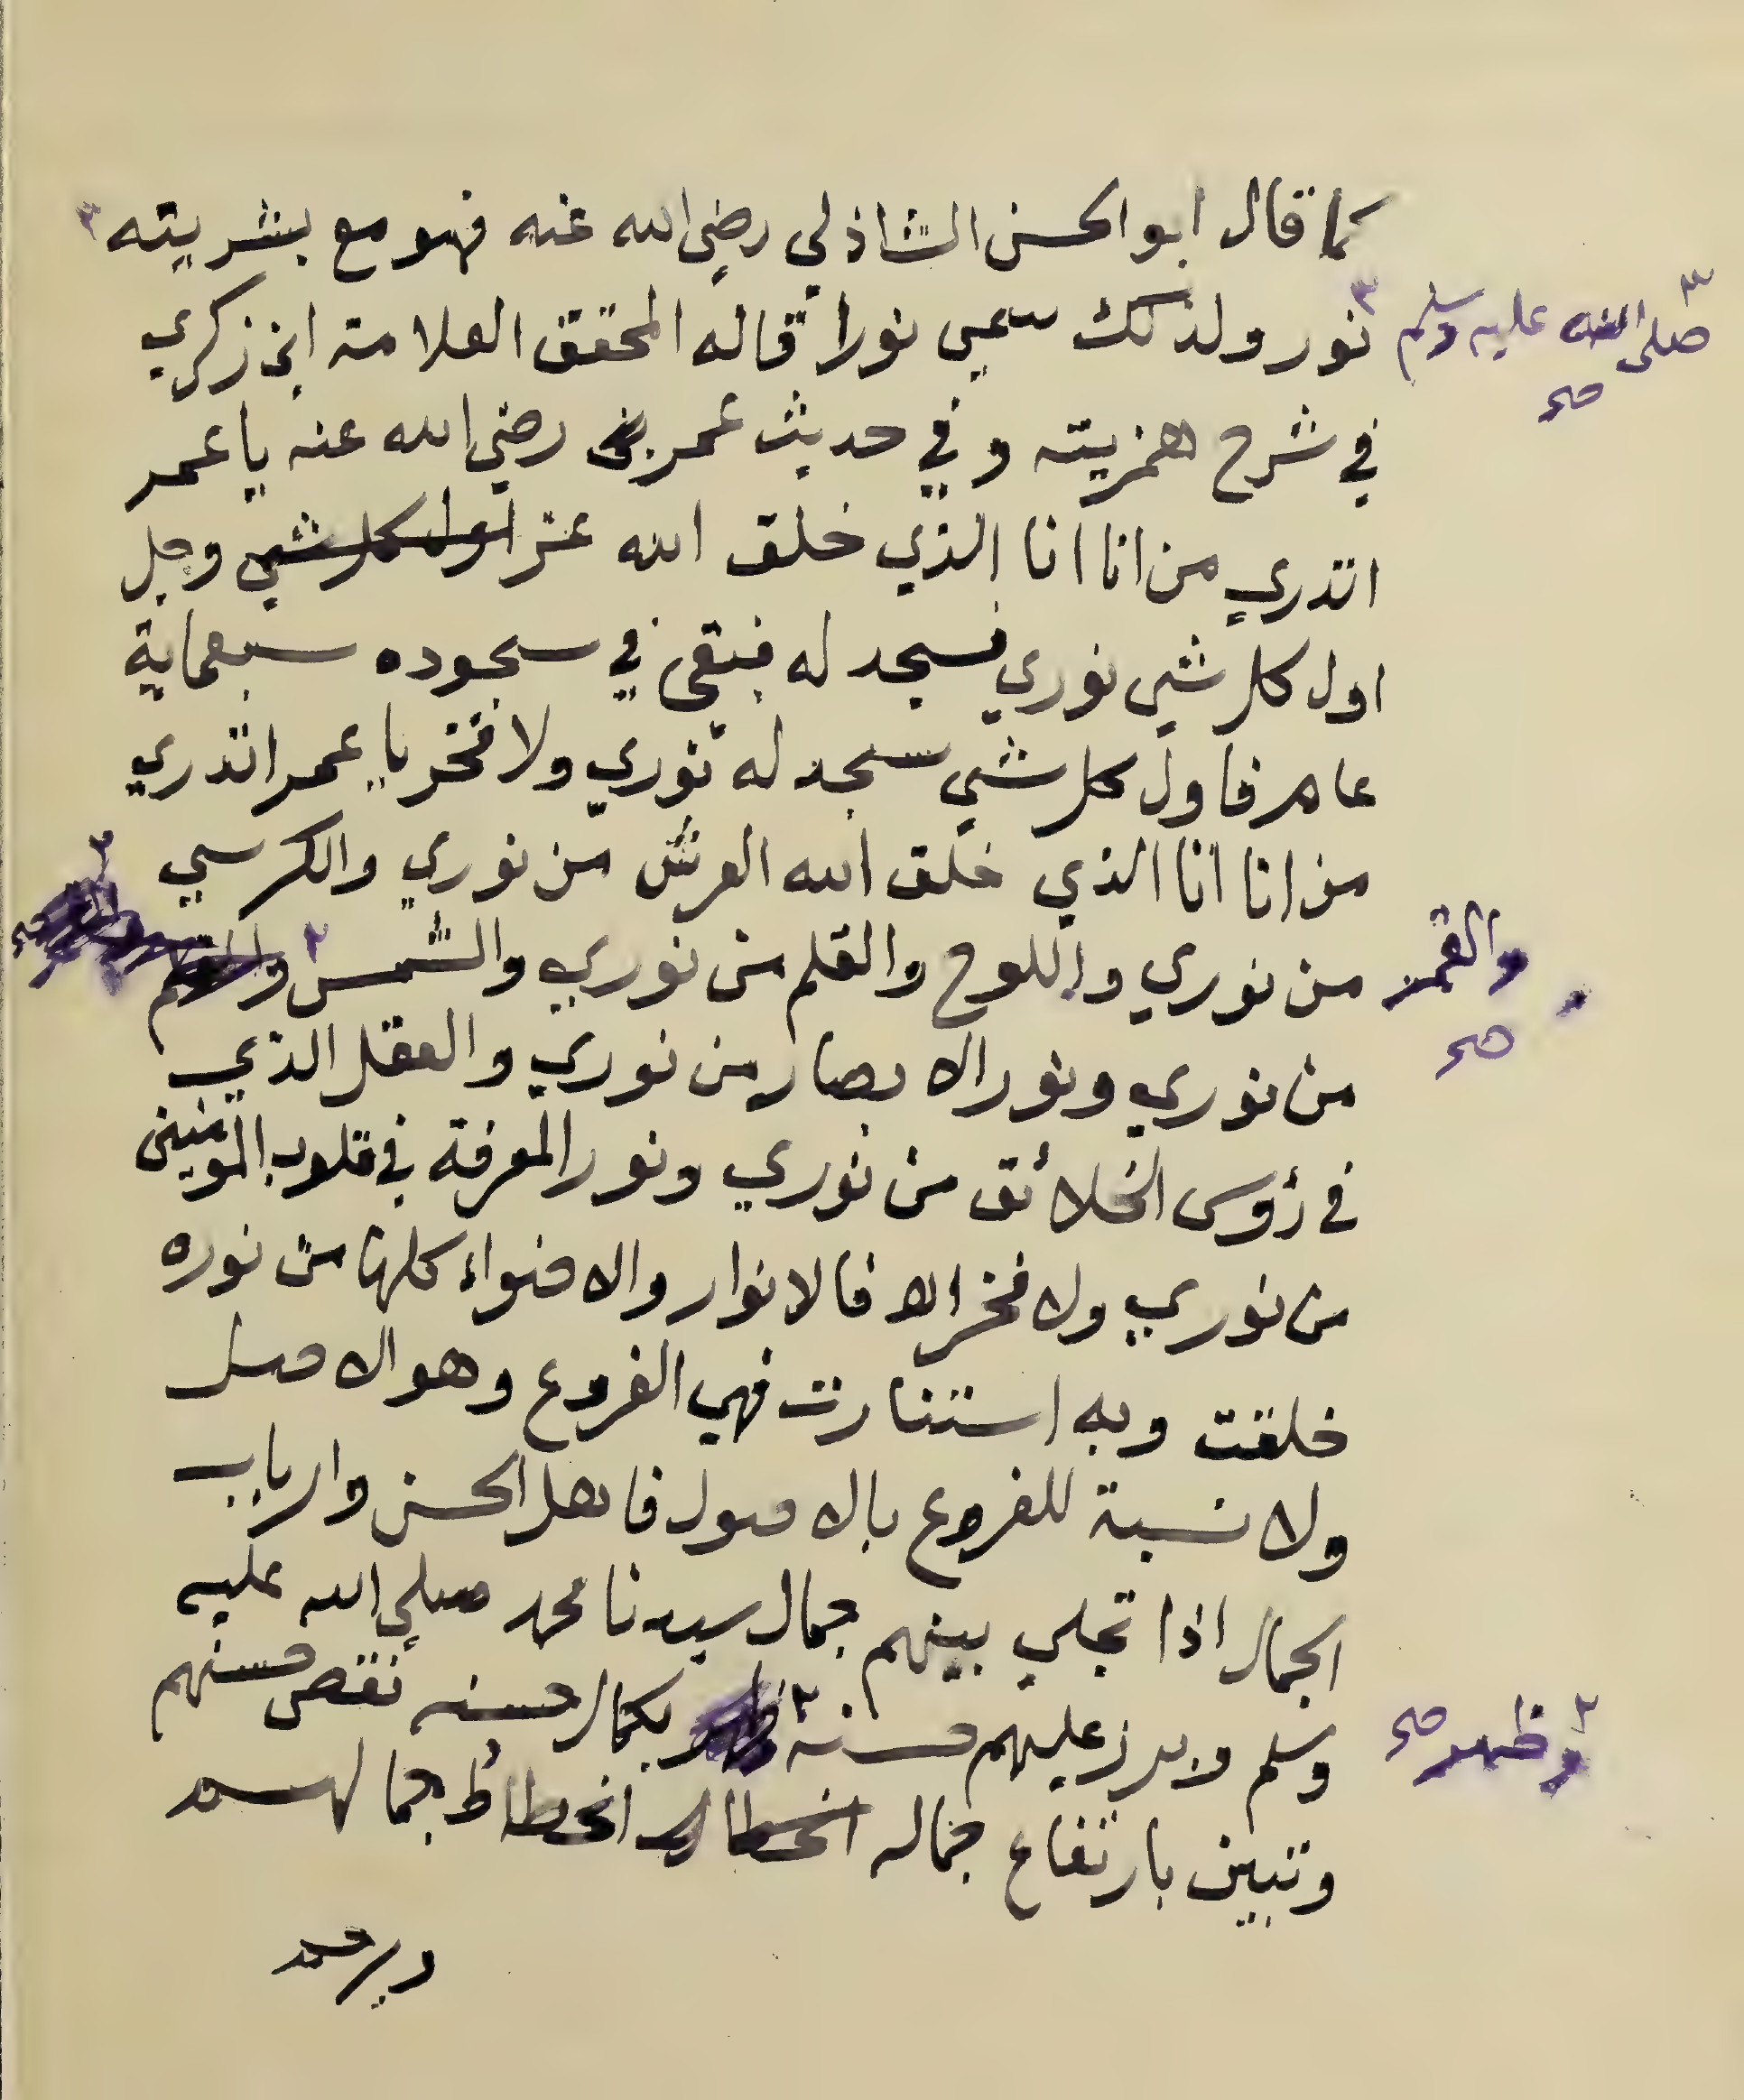 كما قال ابو الحسن الشاذلي رضي الله عنه فهو مع بشريته ٣
٣ صلى الله عليه وسلم صح
نور ولذلك سمي نورا قاله المحقق العلامة ابن زكري
في شرح همزيته وفي حديث عمر رضي الله عنه يا عمر
اتدري من انا انا الذي خلق الله عز اول كل شي وجل
اول كل شي نوري فسجد له فبقى في سجوده سبعماية
عام فاول كل شي سجد له نوري ولا فخر يا عمر اتدري
من انا انا الذي خلق الله العرش من نوري والكرسي
من نوري واللوح والقلم من نوري والشمس ٢
والقمر صح
من نوري ونور الابصار من نوري والعقل الذي
في رؤس الخلائق من نوري ونور المعرفة في قلوب المومنين
من نوري ولا فخر اه فالانوار والاضواء كلها من نوره
خلقت وبه استنارت فهي الفروع وهو الاصل
ولا نسبة للفروع بالاصول فاهل الحسن وارباب
الجمال اذا تجلى بينهم جمال سيدنا محمد صلى الله عليه
وسلم وبرز عليهم حسنه ٢ بكمال حسنه نقص حسنهم
٢ وظهر صح
وتبين بارتفاع جماله انحطاط جمالهم